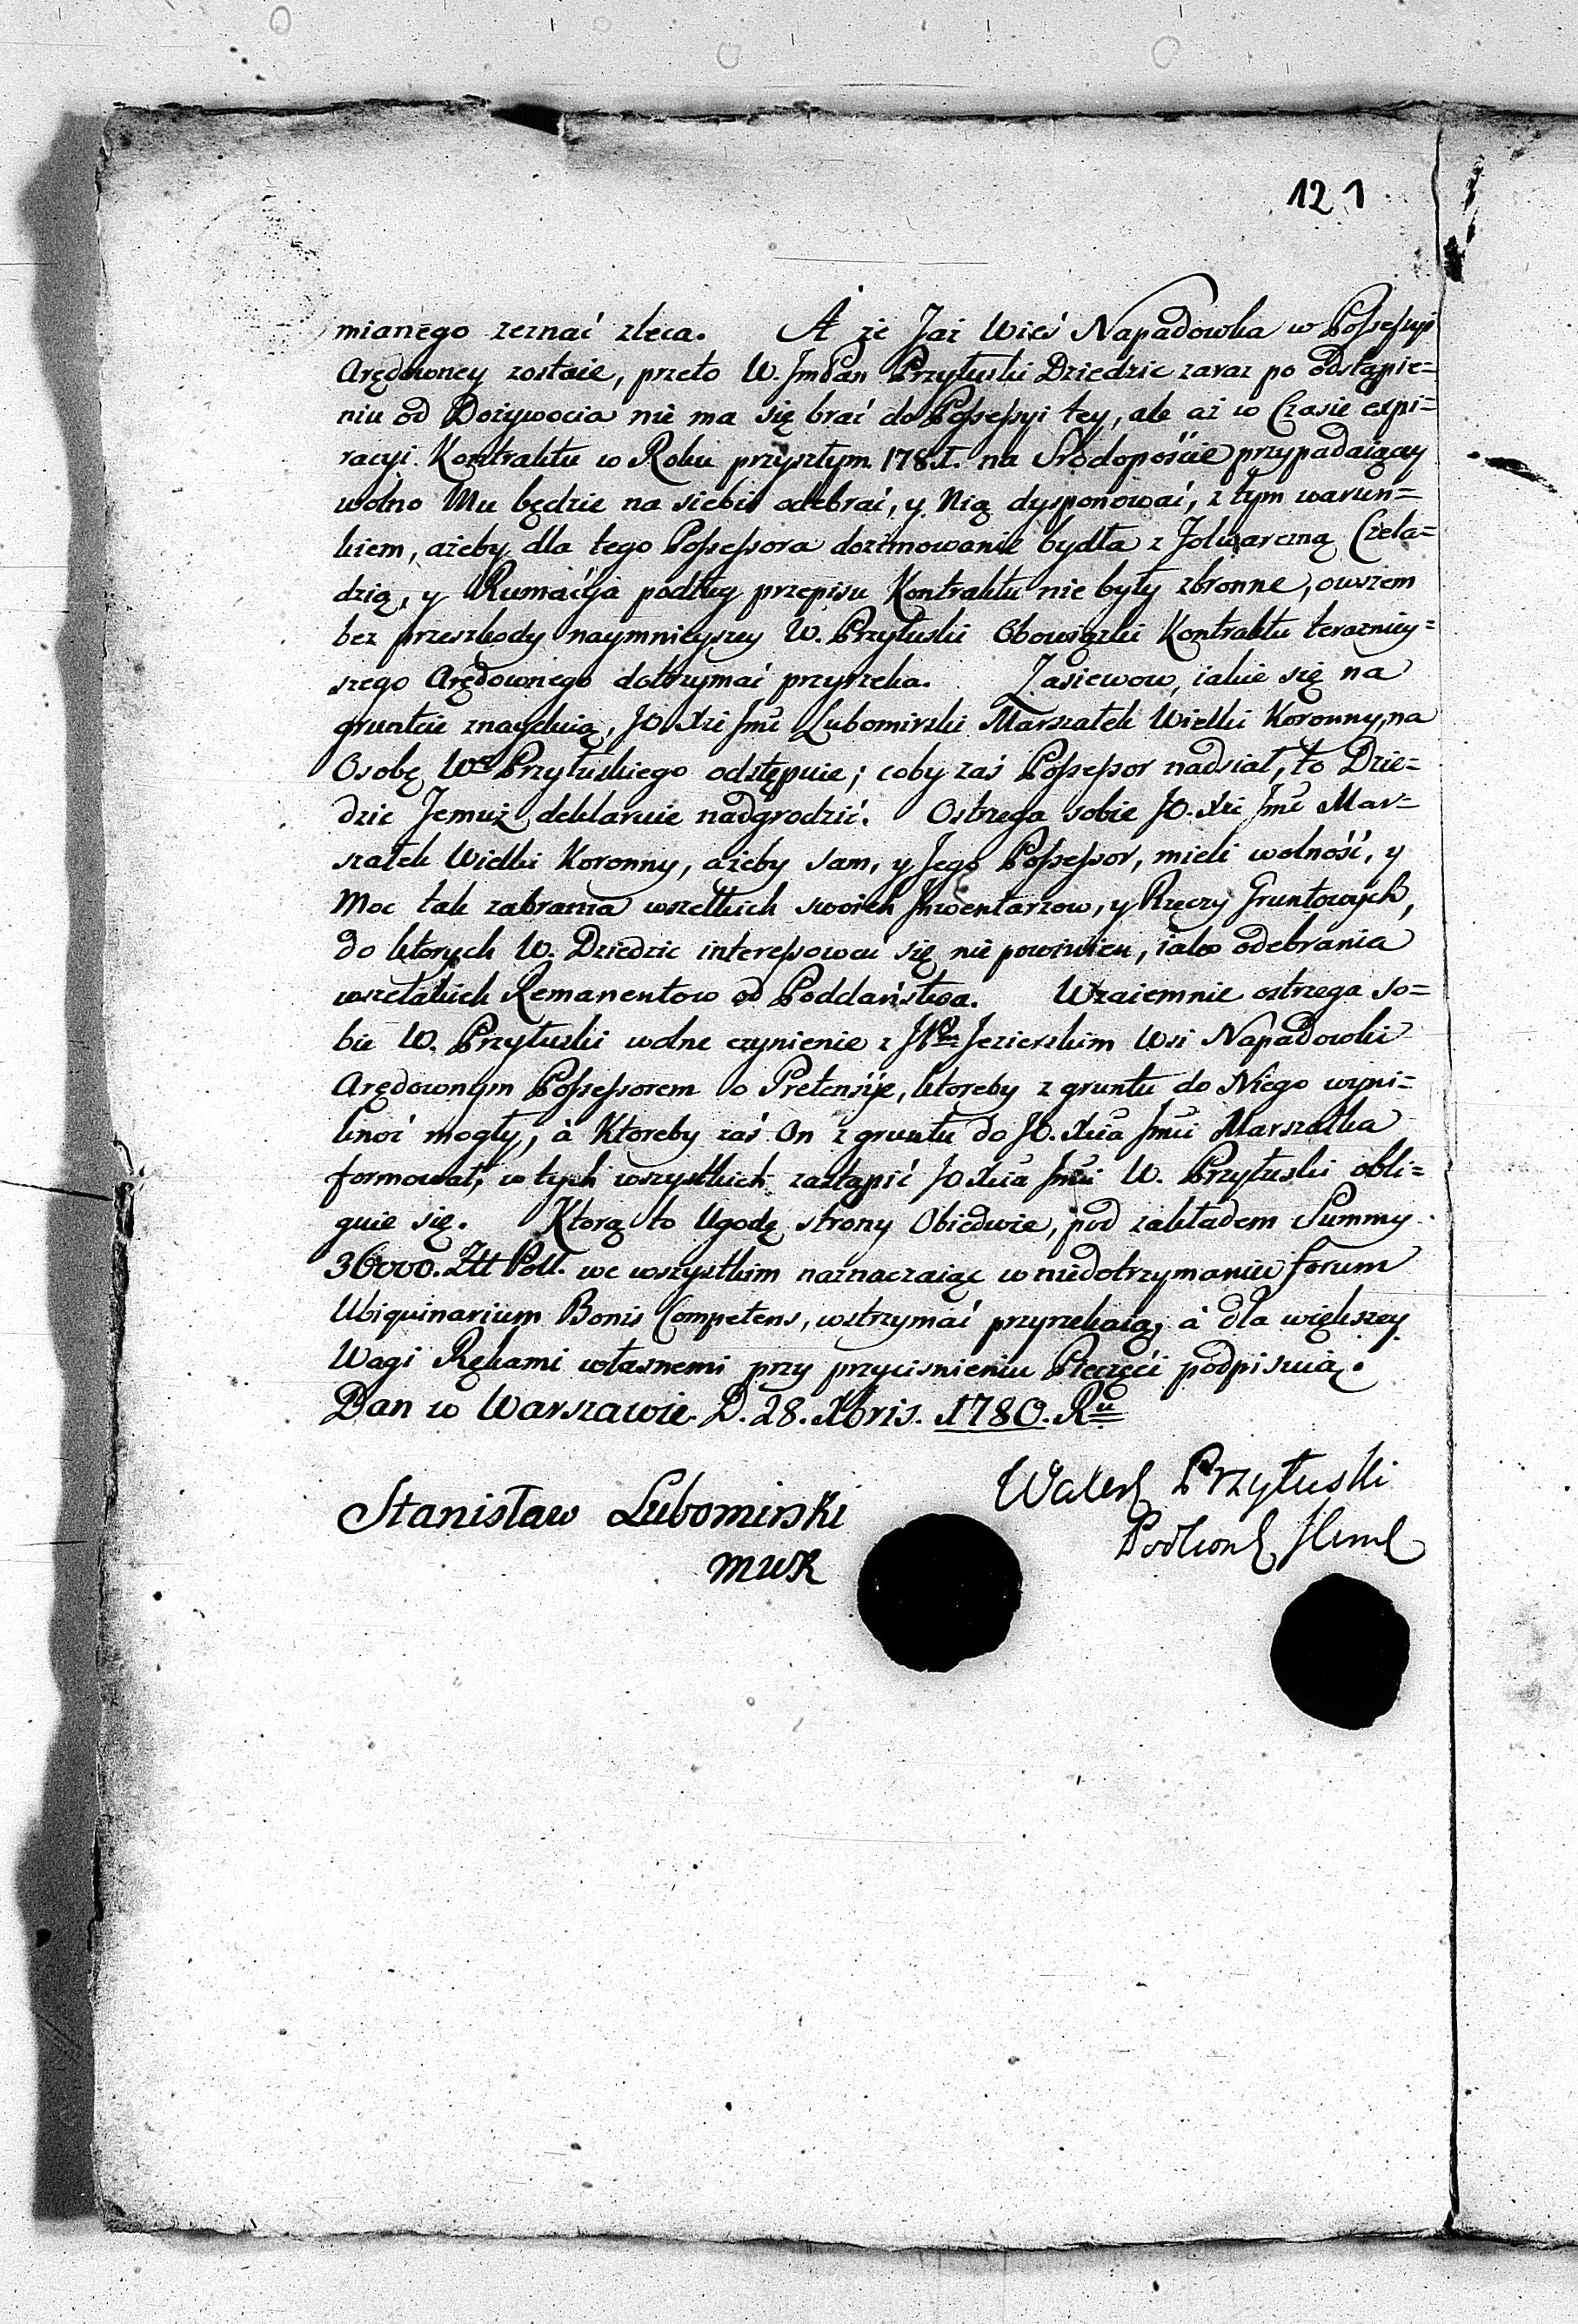 121
mianego zeznać zleca. A że Jaż Wieś Napadowka w Possessyi
Arędowney zostaie, przeto W. JmPan Przyłuski Dziedzic zaraz po odstąpie=
niu od Dożywocia nie ma się brać do Possessyi tey, ale aż w Czasie expi=
racyi Kontraktu w Roku przyszłym 1781. na Srodopoście przypadaiący
wolno Mu będzie na siebie odebrać, y Nią dysponować, z tym warun=
kiem, ażeby dla tego Possessora dozimowanie bydła z Folwarczną Czela=
dzią, y Rumacyja podług przepisu Kontraktu nie były zbronne, owszem
bez przeszkody naymnieyszey W. Przyłuski Obowiązki Kontraktu teraźniey=
szego Arędownego dotrzymać przyrzeka. Zasiewow, iakie się na
gruncie znayduią, JO. Xże Jmć Lubomirski Marszałek Wielki Koronny, na
Osobę Wgo Przyłuskiego odstępuie; coby zaś Possessor nadsiał, to Dzie=
dzic Jemuż deklaruie nadgrodzić. Ostrzega sobie JO. Xże Jmć Mar=
szałek Wielki Koronny, ażeby sam, y Jego Possessor, mieli wolność, y
Moc tak zabrania wszelkich swoich Jnwentarzow, y Rzeczy Gruntowych,
do ktorych W. Dziedzic interessować się nie powinien, iako odebrania
wszelakich Remanentow od Poddaństwa. Wzaiemnie ostrzega so=
bie W. Przyłuski wolne czynienie z JPm Jezierskim Wsi Napadowki
Arędownym Possessorem o Pretensije, ktoreby z gruntu do Niego wyni=
knąć mogły, à Ktoreby zaś On z gruntu do JO. Xcia Jmci Marszałka
formował, w tych wszystkich zastąpić JO Xcia Jmci W. Przyłuski obli=
guie się. Ktorą to Ugodę strony Obiedwie, pod zakładem Summy
36000. Złł Poll. we wszystkim naznaczaiąc w niedotrzymaniu forum
Ubiquinarium Bonis Competens, wstrzymać przyrzekaią, à dla większey
Wagi Rękami własnemi przy przyciśnieniu Pieczęci podpisuią.
Dan w Warszawie. D. 28. Xbris. 1780. Ru
Stanisław Lubomirski
MWK
Waler Przyłuski